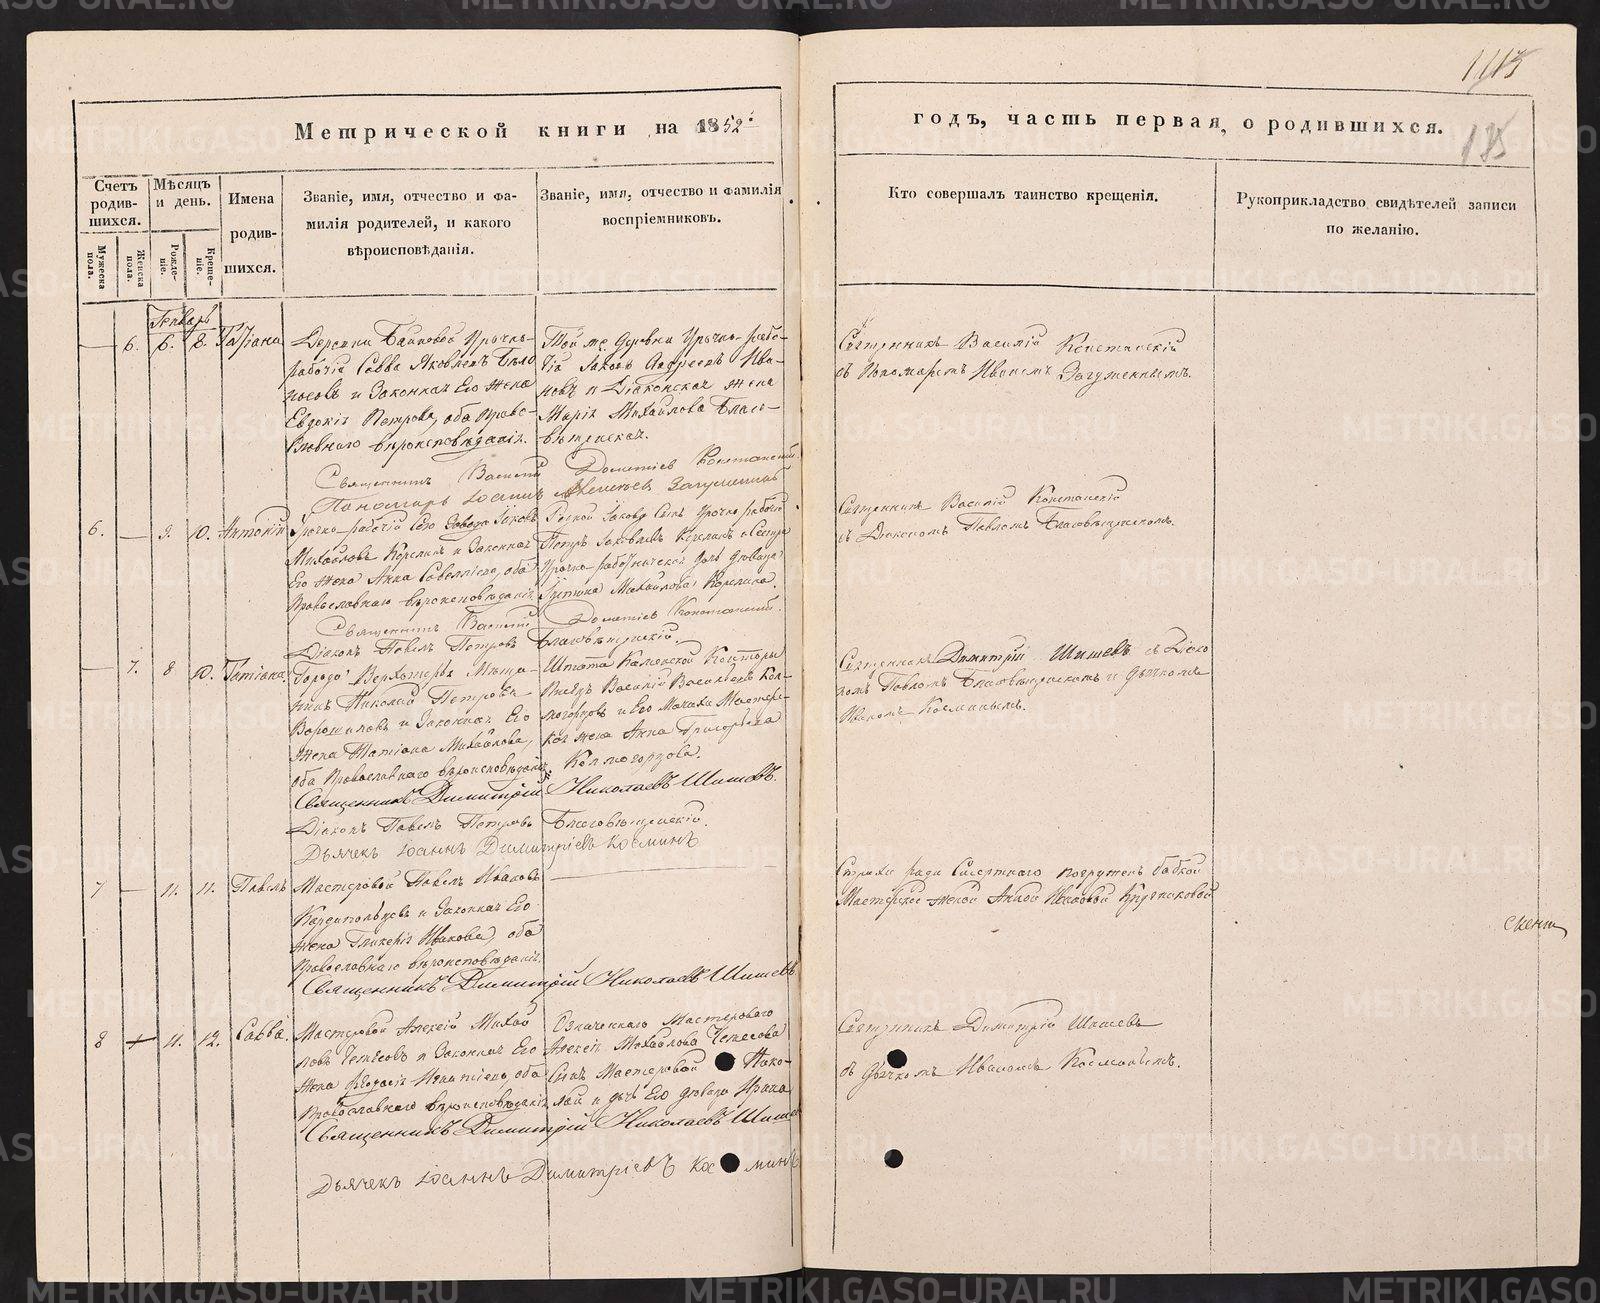 1113
135
Метрической книги на 1852й
годъ, часть первая, о родившихся.
Счетъ родив-шихся.
Мужеска пола.
Женска пола.
Мѣсяцъ и день.
Рожде-ніе.
Креще-ніе.
Имена родив-шихся.
Званіе, имя, отчество и фа-
милія родителей, и какого
вѣроисповѣданія.
Званіе, имя, отчество и фамилія
воспріемниковъ.
Кто совершалъ таинство крещенія.
Рукоприкладство свидѣтелей записи
по желанію.
Генварь
6. 6. 8. Татіана
Деревни Байновой Урочно-
рабочій Савва Яковлевъ Бѣло
носовъ и Законная Его Жена
Евдокія Петрова, оба Право-
Славнаго вѣроисповѣданія.
Той же Деревни Урочно-рабо-
чій Іаковъ Андреевъ Ива-
новъ и Діаконская жена
Марія Михайлова Благо-
вѣщенская.
Священникъ Василій Конетанскій
съ Пономаремъ Иваномъ
Священникъ Василій Дометіевъ
Пономарь Іоаннъ
6. 9. 10. Антоній
Урочно-рабочій Сего Завода Іаковъ
Михайловъ Корелинъ и Законная
Его Жена Анна Савельева, оба
Православнаго вѣроисповѣданія
Родной Іакова Сынъ Урочно рабочій
Петръ Іаковлевъ Корелинъ и Сестра
Урочно-работническая дочь дѣвица
Михайлова Корелина.
Священникъ Василій
съ Діакономъ Павломъ Благовѣщенскимъ.
Священникъ Василій Дометіевъ
Діаконъ Павелъ Петровъ Благовѣщенскій.
7. 8 10. Татіана.
Города Верхотурья Мѣща-
нинъ Николай Петровъ
Ворошиловъ и Законная Его
Жена Татіана Михайлова,
оба Православнаго вѣроисповѣданія
Штата Каменской Конторы
Василій Васильевъ Кол-
могорцовъ и Его Мастерс-
кая жена Анна Григорьева
Колмогорцова.
Священникъ Димитрій Шишевъ съ Діако
номъ Павломъ Благовѣщенскимъ и Дьячкомъ
Иваномъ Косминымъ.
Священникъ Димитрій Николаевъ Шишевъ.
Діаконъ Павелъ Петровъ Благовѣщенскій.
Дьячекъ Іоаннъ Димитріевъ Косминъ
7 11. 11. Павелъ
Мастеровой Павелъ Ивановъ
и Законная Его
жена Гликерія Иванова, оба
Православнаго вѣроисповѣданія.
Страха ради Смертнаго погруженъ бабкой
Мастерской женой Анной Ивановой
Священникъ Димитрій Николаевъ Шишевъ
8 11. 12. Савва.
Мастеровой Алексій Михай
ловъ Чемесовъ и Законная Его
Жена Игнатіева, оба
Православнаго вѣроисповѣданія
Означеннаго Мастероваго
Алексія Михайлова Чемесова
Сынъ Мастеровой Нико-
лай и дочь Его дѣвица Ирина
Священникъ Димитрій Шишевъ
съ Дьячкомъ Иваномъ Косминымъ.
Священникъ Димитрій Николаевъ Шишевъ
Дьячекъ Іоаннъ Димитріевъ Косминъ
METRIKI.GASO-URAL.RU